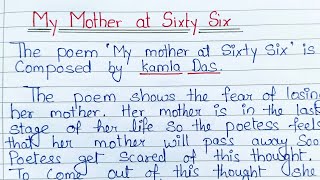 My Mother at Sixty Six
The poem 'My mother at Sixty Six' is
Composed by Kamla Das.
The Poem shows the fear of losing
her mother. Her mother is in the last
stage of her life so the poetess feels
that her mother will pass away Soon
Poetess get scared of this thought.
To come out of this thought she